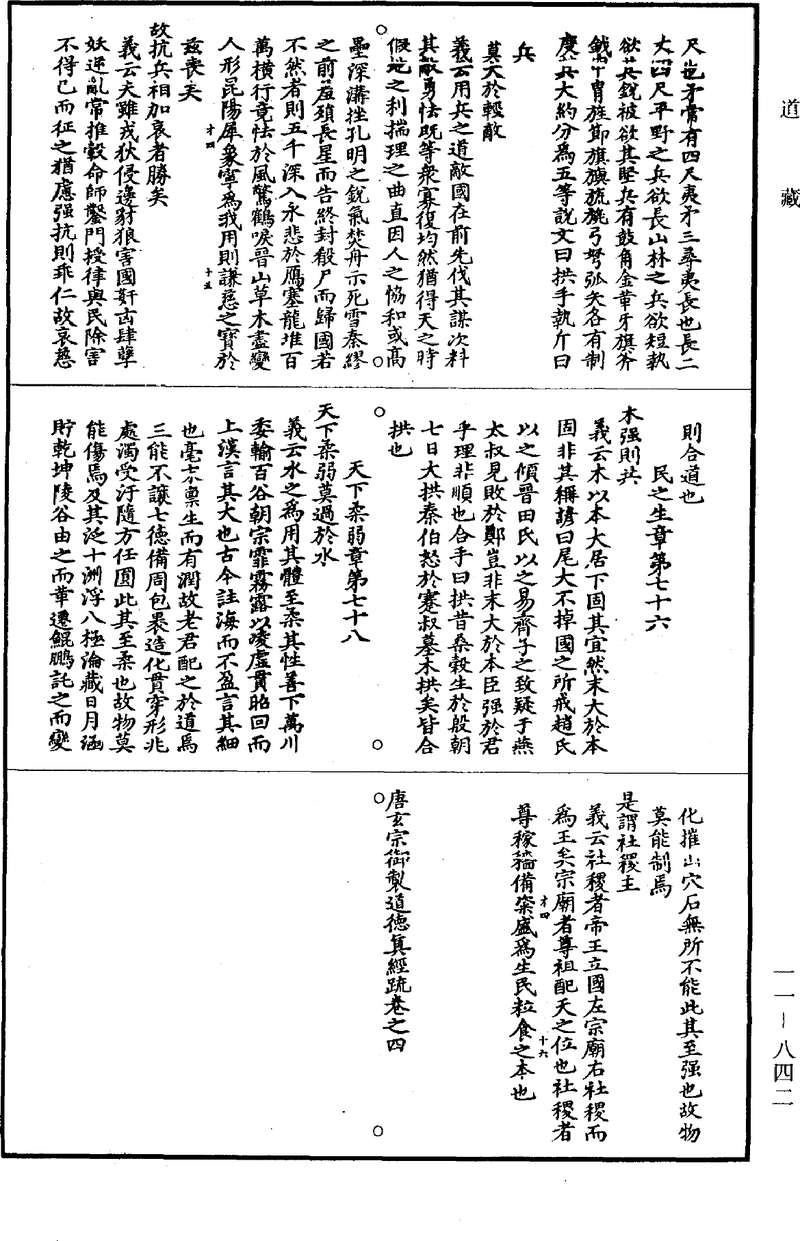 道藏
尺也矛常有四尺夷矛三尋夷長也長二
丈四尺平野之兵欲長山林之兵欲短執
欲其銳被欲其堅兵有鼓角金革牙旗斧
鉞干冑旌節旗旟旒旐弓弩弧矢各有制
度其大約分為五等說文曰拱手執斤曰
兵
莫大於輕敵
義云用兵之道敵國在前先伐其謀次料
其敵勇怯既等衆寡復均然猶得天之時
假地之利揣理之曲直因人之恊和或高
壘深溝挫孔明之銳氣焚舟示死雪秦繆
之前羞頹長星而告終封殽尸而歸國若
不然者則五千深入永悲於鴈塞龍堆百
萬橫行竟怯於風驚鶴唳晉山草木盡變
人形昆陽犀象寧為我用則謙慈之寶於
茲喪矣
才四
十五
故抗兵相加哀者勝矣
義云夫雖戎狄侵邊豺狼害國姧凶肆孽
妖逆亂常推轂命師鑿門授律與民除害
不得已而征之猶慮强抗則乖仁故哀慈
則合道也
民之生章第七十六
木强則共
義云木以本大居下固其宜然末大於本
固非其稱諺曰尾大不掉國之所戒趙氏
以之傾晉田氏以之易齊子之致疑于燕
太叔見敗於鄭豈非末大於本臣强於君
乎理非順也合手曰拱昔桑穀生於殷朝
七日大拱秦伯怒於蹇叔墓木拱矣皆合
拱也
天下柔弱章第七十八
天下柔弱莫過於水
義云水之為用其體至柔其性善下萬川
委輸百谷朝宗霏霧露以凌虛貫昭回而
上漢言其大也古今註海而不盈言其細
也毫末稟生而有潤故老君配之於道焉
三能不讓七德備周包褁造化貫穿形兆
處濁受汙隨方任圓此其至柔也故物莫
能傷焉及其泛十洲浮八極淪藏日月涵
貯乾坤陵谷由之而革遷鯤鵬託之而變
化摧山穴石無所不能此其至强也故物
莫能制焉
是謂社稷主
義云社稷者帝王立國左宗廟右社稷而
為王矣宗廟者尊祖配天之位也社稷者
才四
十六
尊稼穡備粢盛為生民粒食之本也
唐玄宗御製道德真經疏卷之四
一一－八四二